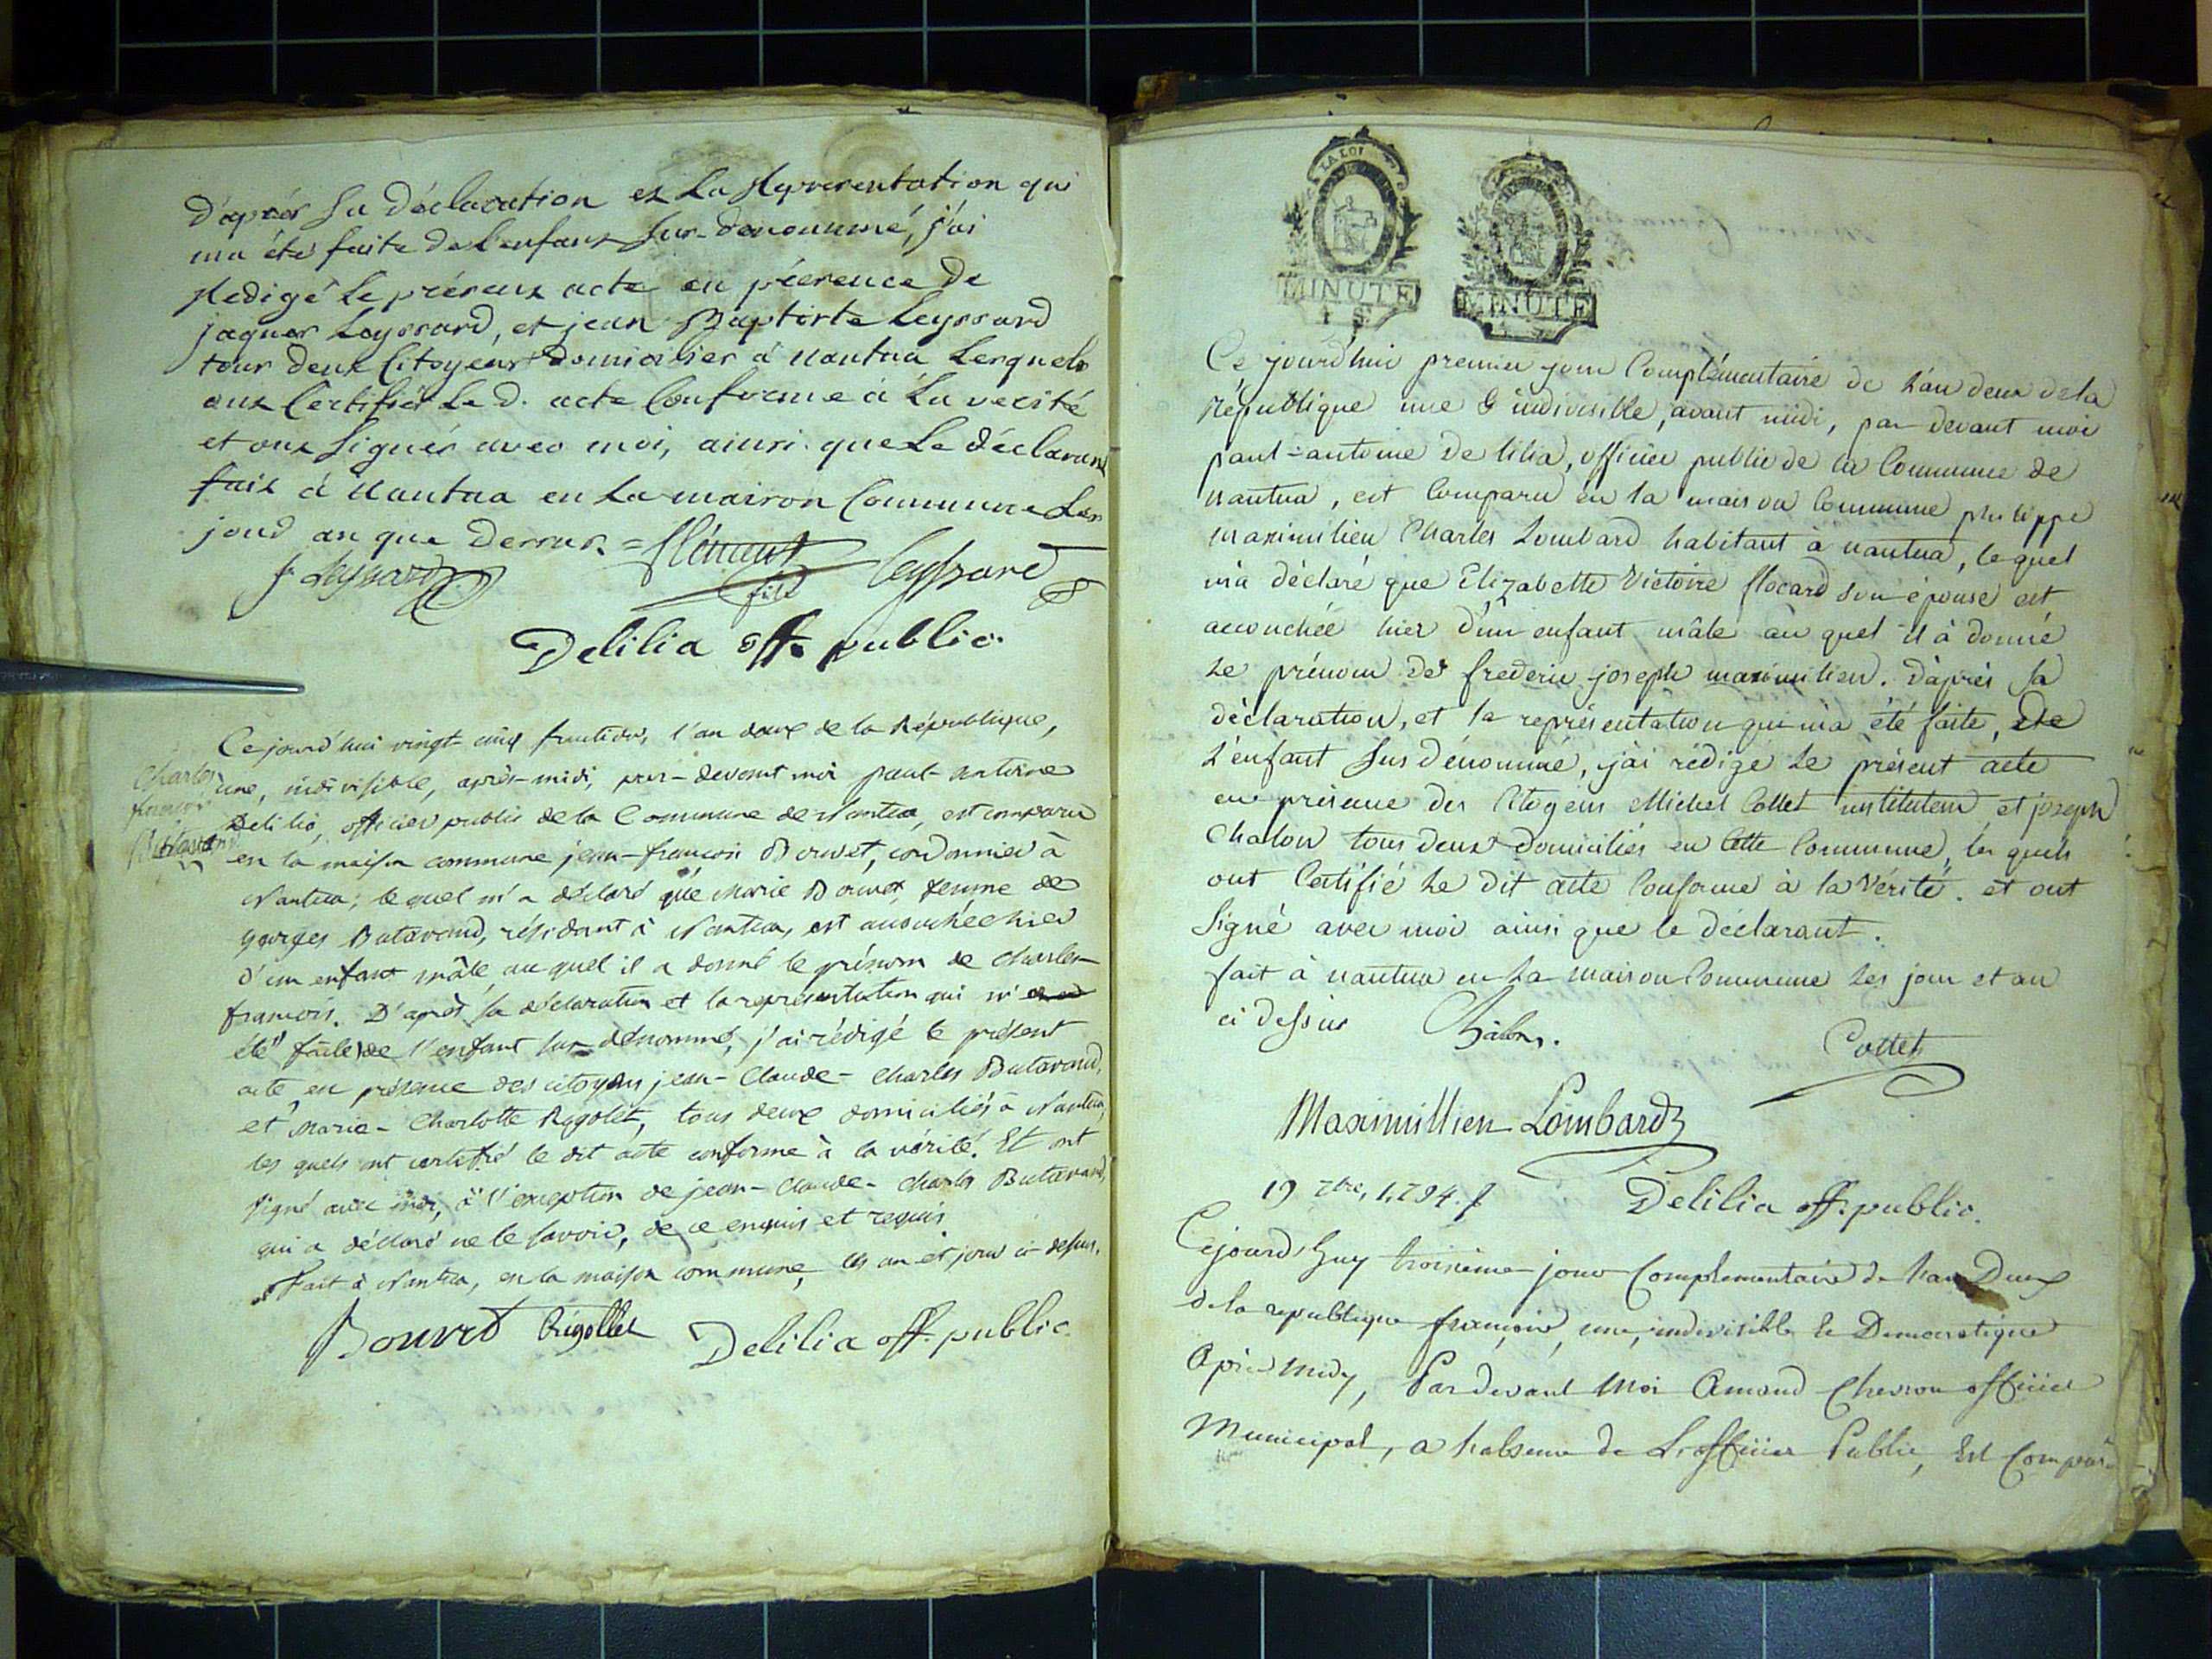 D'après sa déclaration et La Représentation qui
ma été faite de L'enfant sus-dénommé, j'ai
Redigé Le présent acte en présence de
jaques Leyssard, et jean Baptiste Leyssard
tous deux Citoyens domiciliés à Nantua Lesquels
ont Certifié Le d. acte Conforme à La verité
et ont Signés avec moi, ainsi que Le déclarant
fait à Nantua en La maison Commune Les
jour an que Dessus =
J Leyssard Clément fils Leyssard
Delilia off. public.
Charles
françois
Butavand
Ce jourd'hui vingt-cinq fructidor, l'an deux de la République,
une, indivisible, après-midi, par-devant moi paul-antoine
Delilia, officier public de la Commune de Nantua, est comparu
en la maison commune jean-françois Bouvet, cordonnier à
Nantua; lequel m'a déclaré que Marie Bouvet, femme de
georges Butavand, résidant à Nantua, est accouchée hier
d'un enfant mâle, au quel il a donné le prénom de charles-
françois. D'après sa déclaration et la représentation qui m'a
été faite de l'enfant sus-dénommé, j'ai rédigé le présent
acte, en présence des citoyens jean-Claude-Charles Butavand,
et Marie-Charlotte Rigolet, tous deux domiciliés à Nantua,
les quels ont certifié le dit acte conforme à la vérité. Et ont
signé avec moi, à l'exception de jean-claude-charles Butavand,
qui a déclaré ne le savoir, de ce enquis et requis
Fait à Nantua, en la maison commune, les an et jour ci-dessus.
Bouvet Rigollet Delilia off. public
LA LOI
MINUTE
MINUTE
Ce jourd'hui premier jour Complémentaire de L'an deux de la
République une & indivisible, avant midi, par devant moi
paul-antoine De lilia, officier public de la Commune de
nantua, est Comparu en la maison Commune philippe
maximilien Charles Lombard habitant à nantua, le quel
m'a déclaré que Elizabette Victoire flocard son épouse est
accouchée hier d'un enfant mâle au quel il à donné
Le prénom de frederic joseph maximilien. D'après sa
déclaration, et la représentation qui m'a été faite, de
L'enfant sus dénommé, j'ai rédigé Le présent acte
en présence des Citoyens Michel Cottet instituteur et joseph
Chalon tous deux domiciliés en Cette Commune, les quels
ont Certifié Le dit acte Conforme à la Vérité. et ont
Signé avec moi ainsi que le déclarant.
fait à nantua en La maison Commune Les jour et an
ci dessus Chalon. Cottet
Maximillien Lombard
19 7bre, 1,794. Delilia off. public.
Cejourd'huy troisieme jour Complementaire de L'an Deux
de la republique françoise, une, indivisible & Democratique
Après Midy, Par devant Moi Amand Chevron officier
Municipal, a Labsence de L'officier Public, Est Comparu